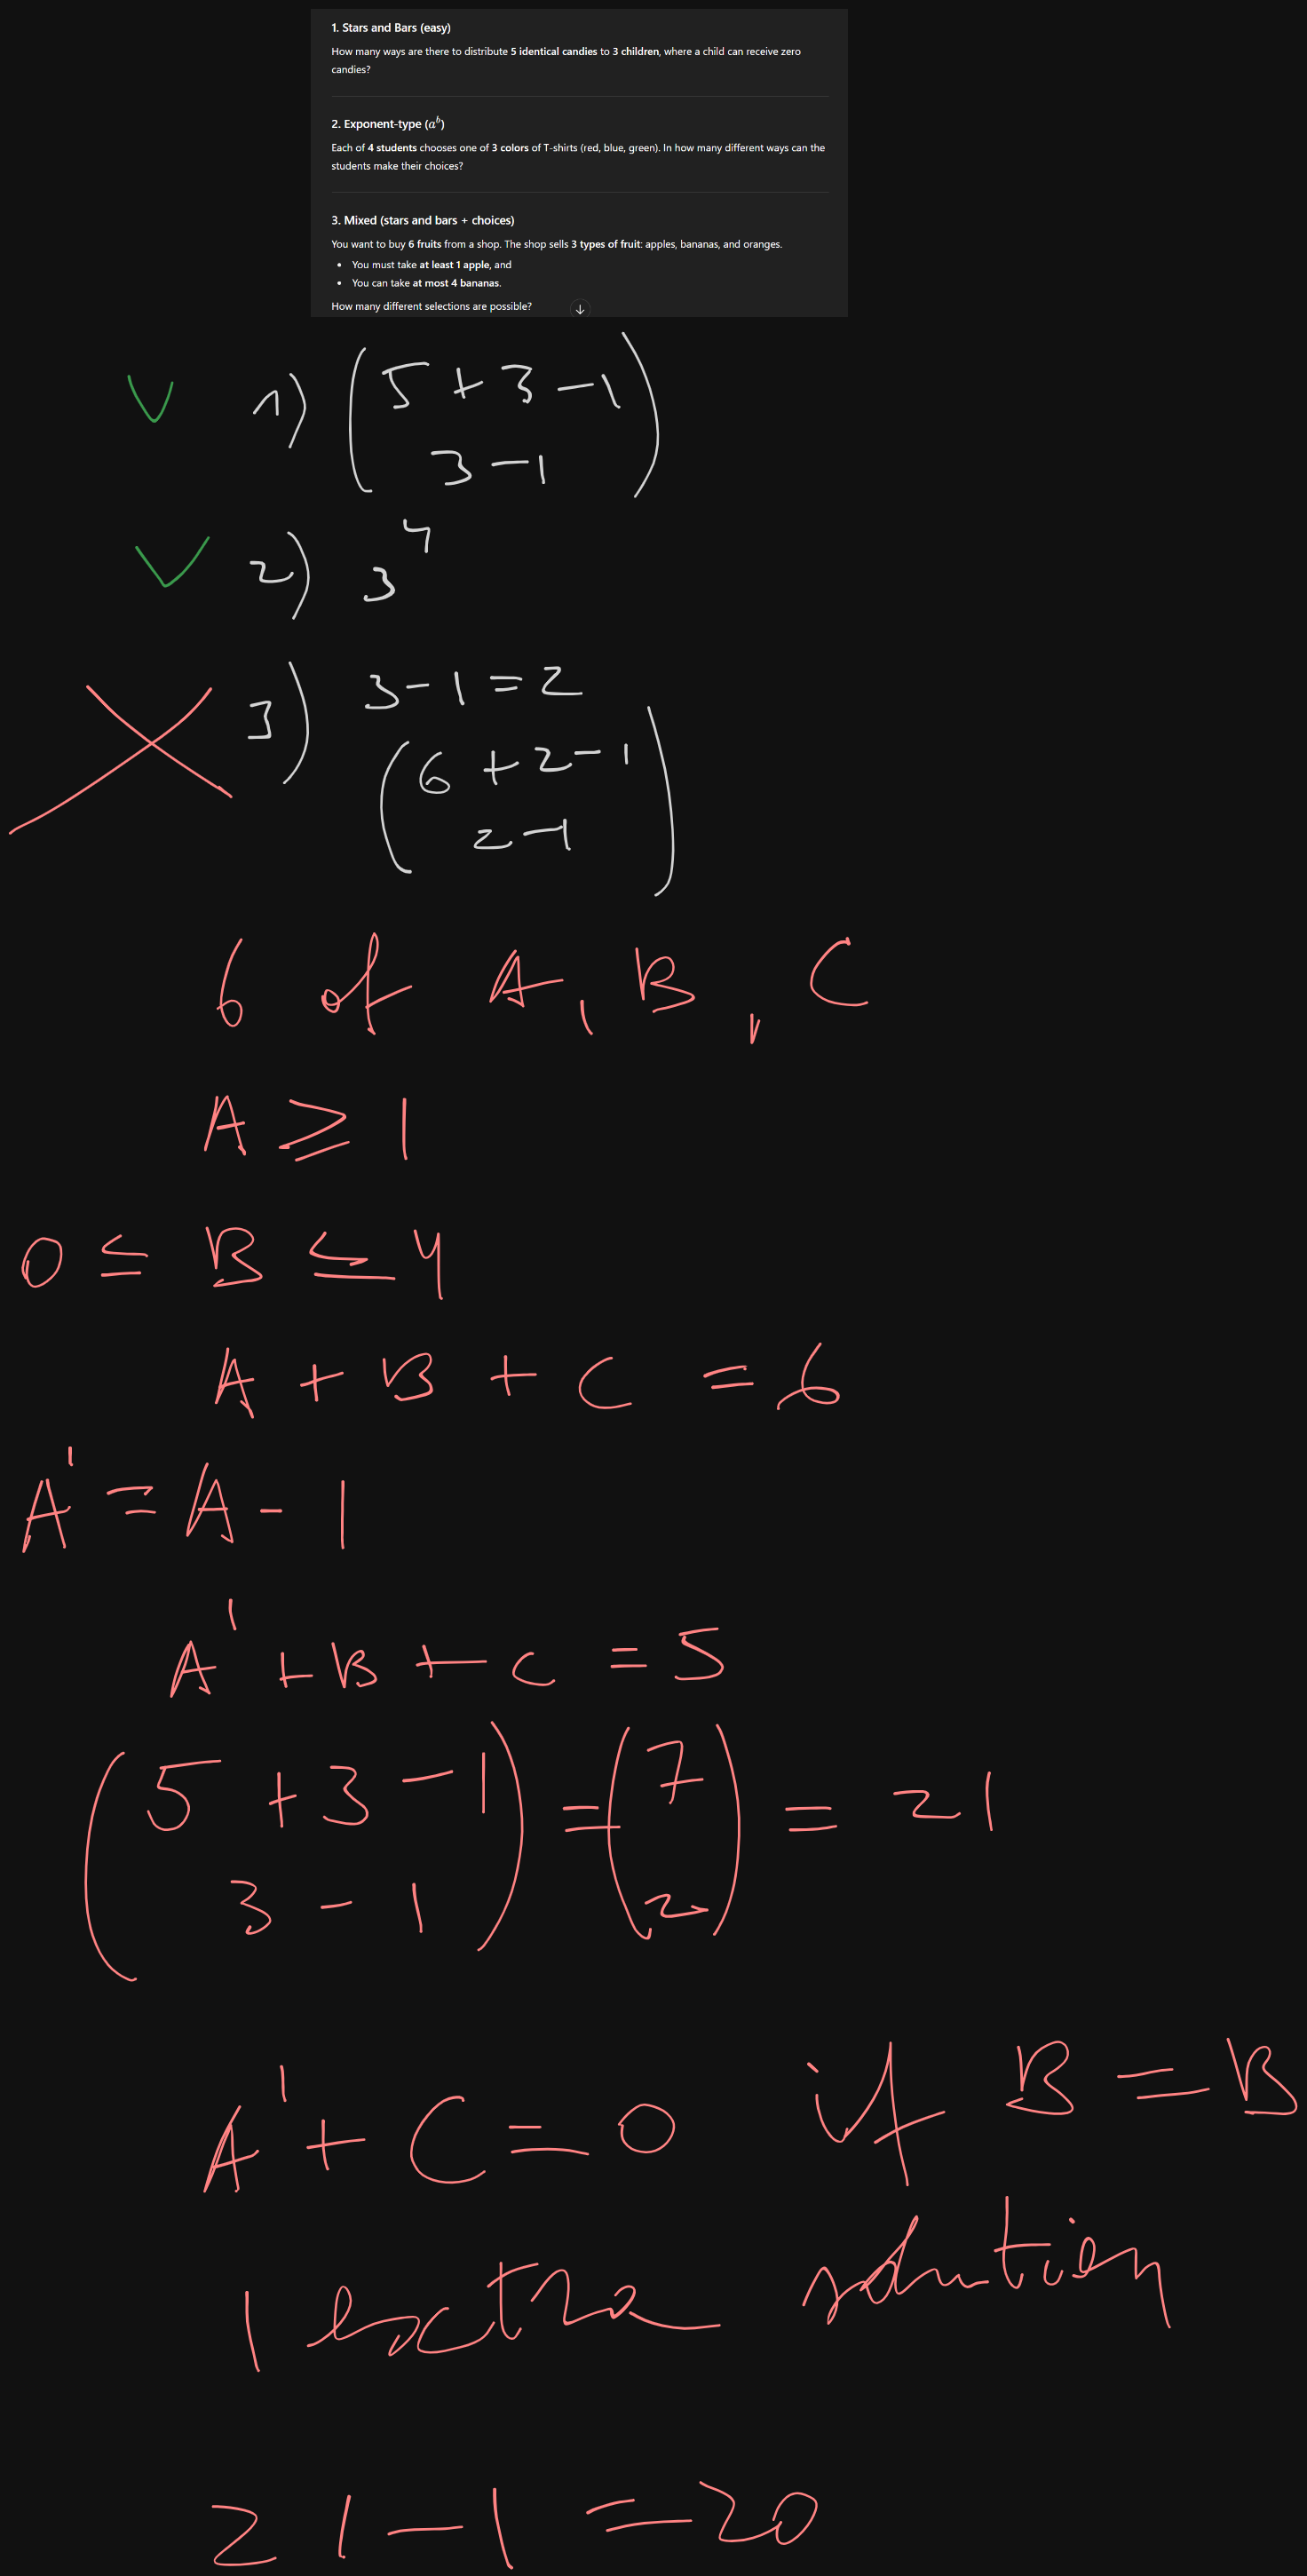 1. Stars and Bars (easy)
How many ways are there to distribute 5 identical candies to 3 children, where a child can receive zero
candies?
2. Exponent-type (a^b)
Each of 4 students chooses one of 3 colors of T-shirts (red, blue, green). In how many different ways can the
students make their choices?
3. Mixed (stars and bars + choices)
You want to buy 6 fruits from a shop. The shop sells 3 types of fruit: apples, bananas, and oranges.
• You must take at least 1 apple, and
• You can take at most 4 bananas.
How many different selections are possible?
1) (5+3-1
3-1)
2) 3^4
3) 3-1=2
(6+2-1
2-1)
6 of A, B, C
A ≥ 1
0 ≤ B ≤ 4
A + B + C = 6
A' = A - 1
A' + B + C = 5
(5+3-1 = (7 = 21
3-1) 2)
A' + C = 0 if B = B
1 extra solution
21-1=20